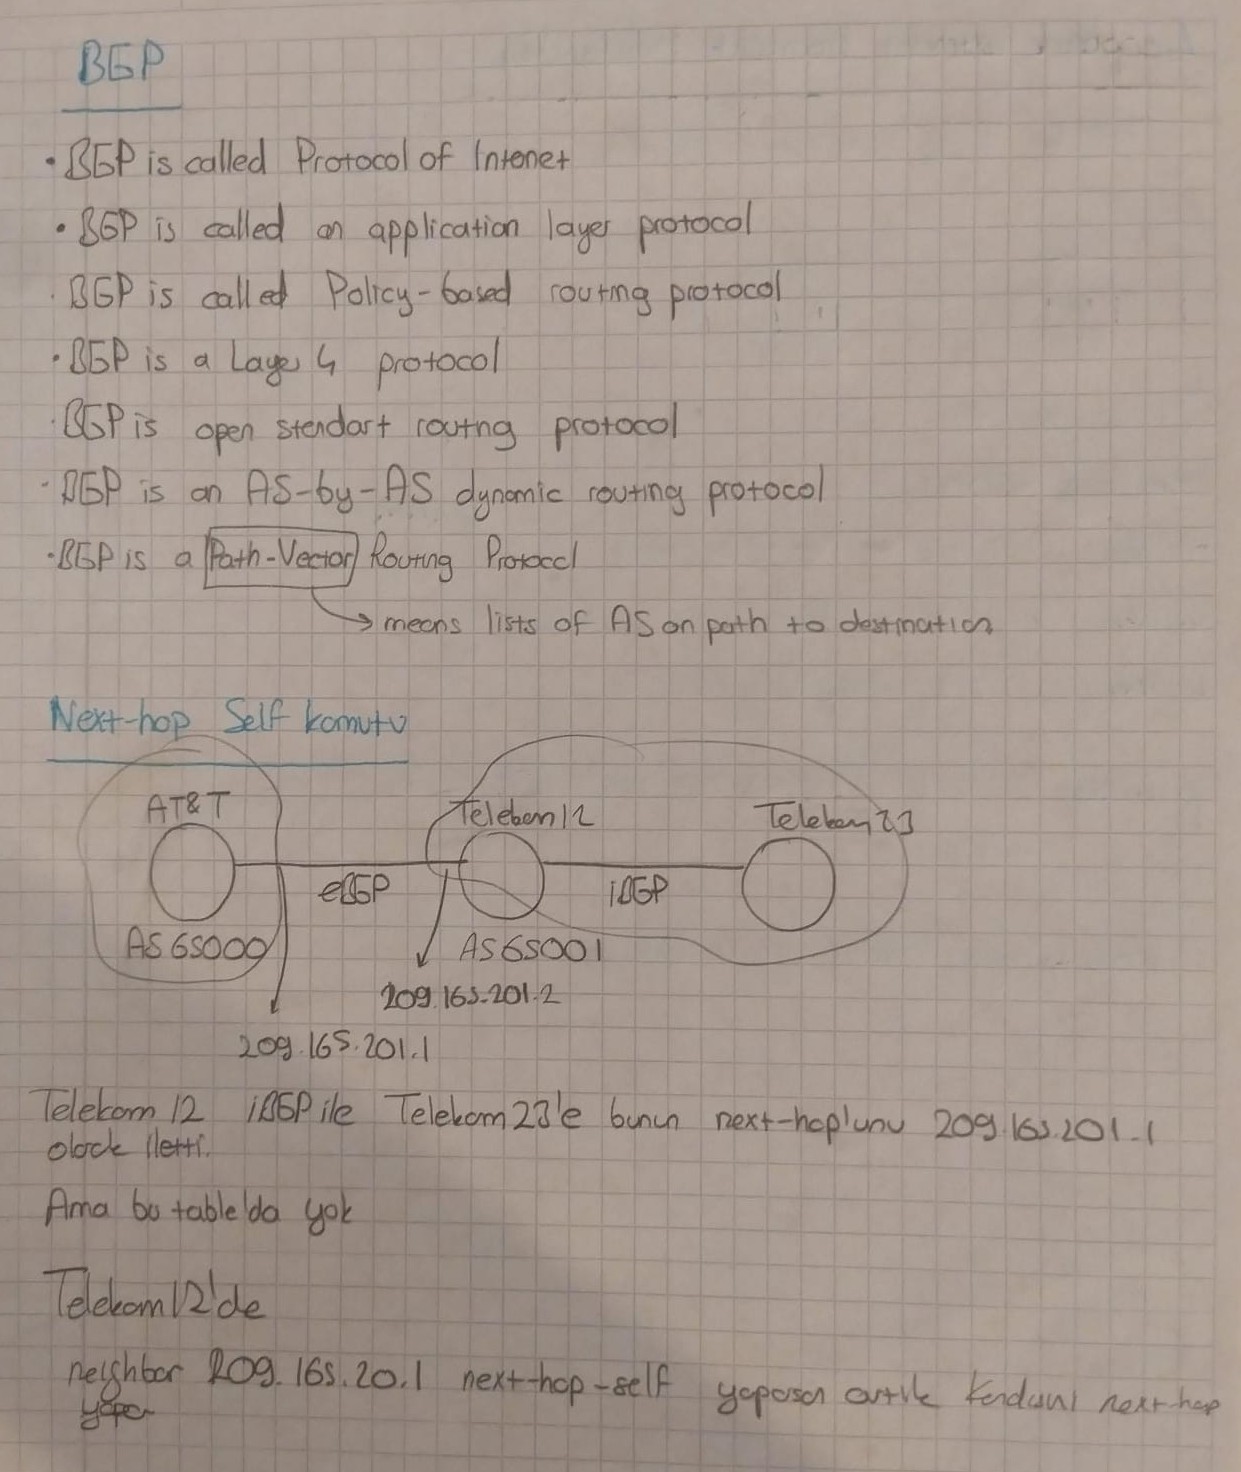 BGP
• BGP is called Protocol of Intenet
• BGP is called an application layer protocol
· BGP is called Policy-based routing protocol
• BGP is a Layer 4 protocol
· BGP is open stendart routing protocol
· BGP is an AS-by-AS dynamic routing protocol
• BGP is a Path-Vector Routing Protocol
→ means lists of AS on path to destination
Next-hop Self komutu
AT&T Telekom12 Telekom23
eBGP iBGP
AS 65000 AS 65001
209.165.201.2
209.165.201.1
Telekom 12 iBGP ile Telekom23'e bunun next-hop'unu 209.165.201.1
olarak iletti.
Ama bu table'da yok
Telekom12'de
neighbor 209.165.20.1 next-hop-self yaparsan artık kendisini next-hop
yapar